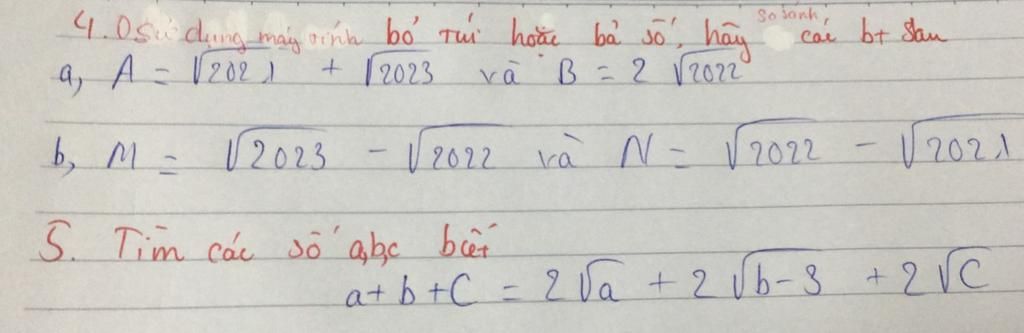 4. O sử dụng máy tính bỏ túi hoặc bả số, hãy so sánh các bt sau
a, A = √2021 + √2023 và B = 2 √2022
b, M = √2023 - √2022 và N = √2022 - √2021
5. Tìm các số a,b,c biết
a + b + C = 2√a + 2√b-3 + 2√C